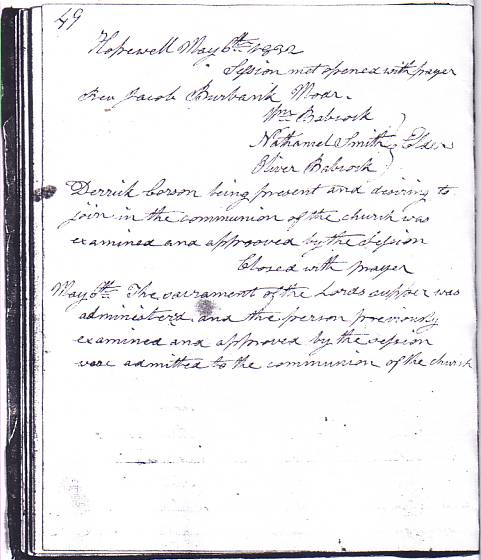 49
Hopewell May 6th 1832
Session met opened with prayer
Rev Jacob Burbank Modr.
Wm Babcock
Nathaniel Smith Elders
Oliver Babcock
Derrick Corson being present and desiring to
join in the communion of the church was
examined and approoved by the Session
Closed with prayer
May 6th The sacrament of the Lords supper was
administerd and the person previously
examined and approved by the session
were admitted to the communion of the church